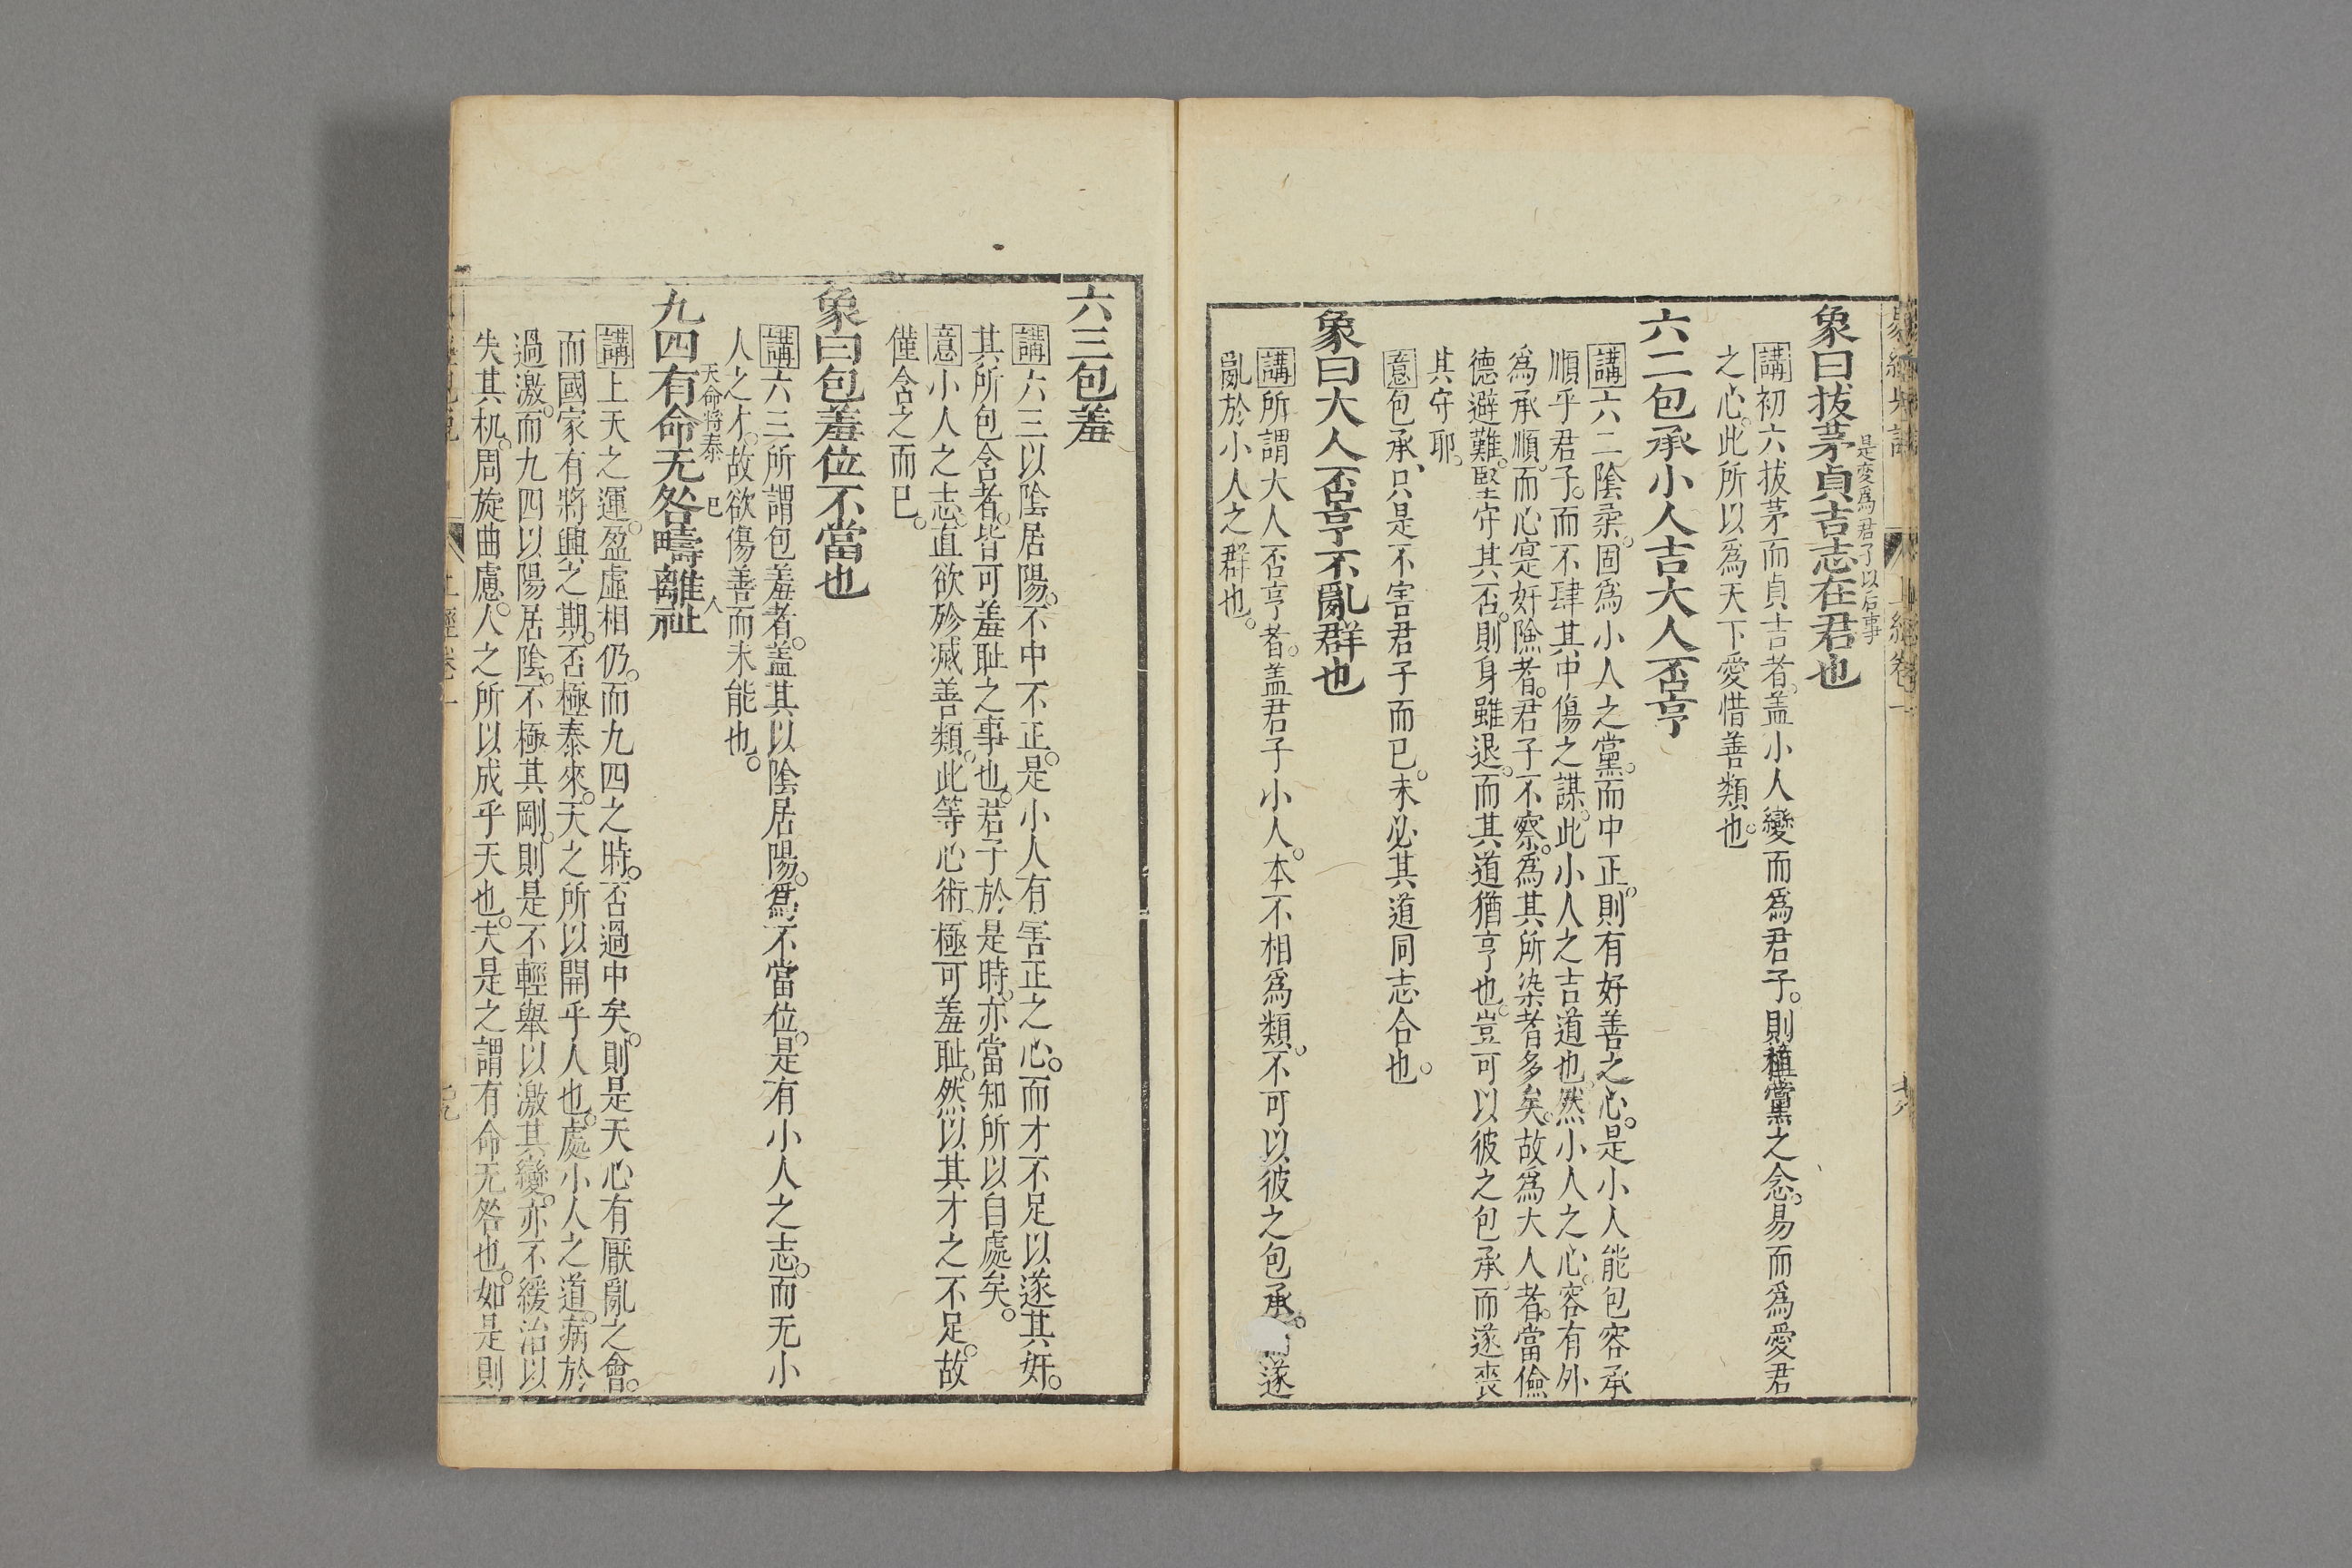 象曰拔茅貞吉志在君也
是变爲君子以后事
講初六拔茅而貞吉者。蓋小人變而爲君子。則植黨之念。易而爲愛君
之心。此所以爲天下愛惜善類也。
六二包承小人吉大人否亨
講六二陰柔。固爲小人之黨。而中正。則有好善之心。是小人能包容承
順乎君子。而不肆其中傷之謀。此小人之吉道也。然小人之心。容有外
爲承順。而心寔奸險者。君子不察。爲其所染者多矣。故爲大人者。當儉
德避難。堅守其否。則身雖退。而其道猶亨也。豈可以彼之包承。而遂喪
其守耶。
意包承、只是不害君子而已。未必其道同志合也。
象曰大人否亨不亂群也
講所謂大人否亨者。蓋君子小人。本不相爲類。不可以彼之包承。遂
亂於小人之群也。
六三包羞
講六三以陰居陽。不中不正。是小人有害正之心。而才不足以遂其奸。
其所包含者。皆可羞耻之事也。君子於是時。亦當知所以自處矣。
意小人之志。直欲殄滅善類。此等心術。極可羞耻。然以其才之不足。故
僅含之而已。
象曰包羞位不當也
講六三所謂包羞者。蓋其以陰居陽。爲不當位。是有小人之志。而无小
人之才。故欲傷善而未能也。
天命将泰 已 人
九四有命无咎疇離祉
講上天之運。盈虛相仍。而九四之時。否過中矣。則是天心有厭亂之會。
而國家有將興之期。否極泰來。天之所以開乎人也。處小人之道。病於
過激。而九四以陽居陰。不極其剛。則是不輕舉以激其變。亦不緩治以
失其机。周旋曲慮。人之所以成乎天也。夫是之謂有命无咎也。如是則